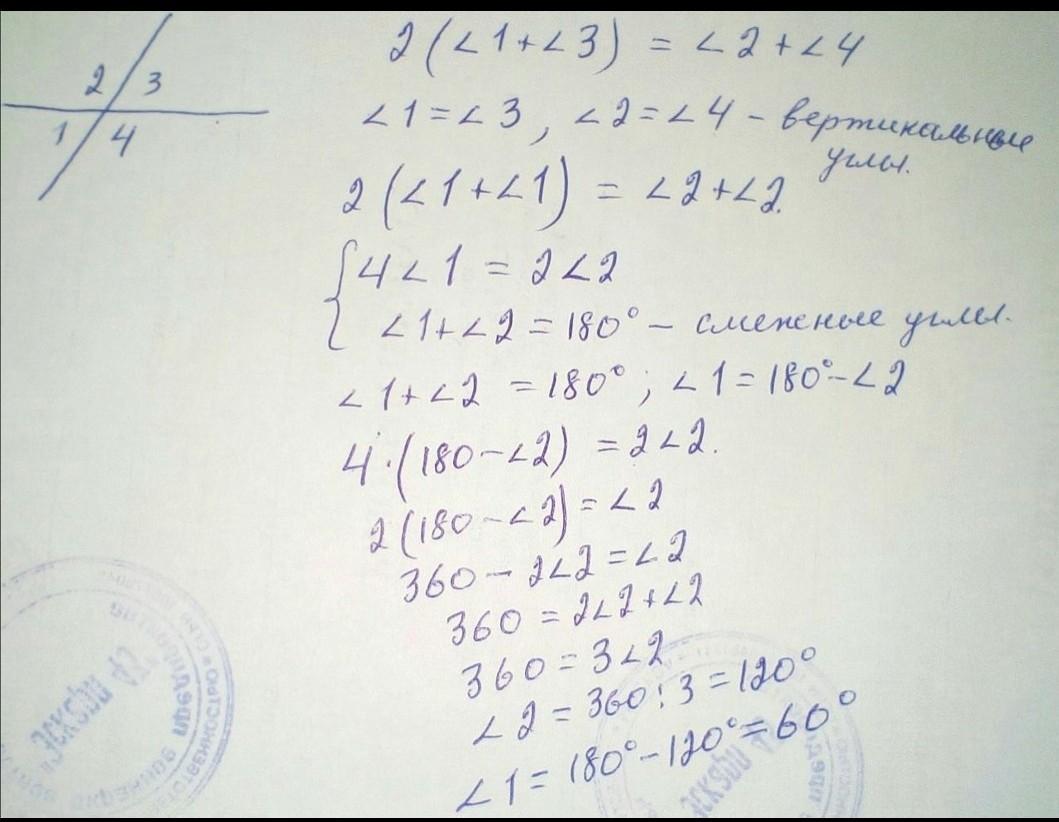 2 3
1 4
2(∠1+∠3) = ∠2+∠4
∠1=∠3, ∠2=∠4 - вертикальные
углы.
2(∠1+∠1) = ∠2+∠2.
4∠1 = 2∠2
∠1+∠2 = 180° - смежные углы.
∠1+∠2 = 180°; ∠1 = 180°-∠2
4·(180-∠2) = 2∠2.
2(180-∠2) = ∠2
360 - 2∠2 = ∠2
360 = 2∠2+∠2
360 = 3∠2
∠2 = 360:3 = 120°
∠1 = 180°-120° = 60°